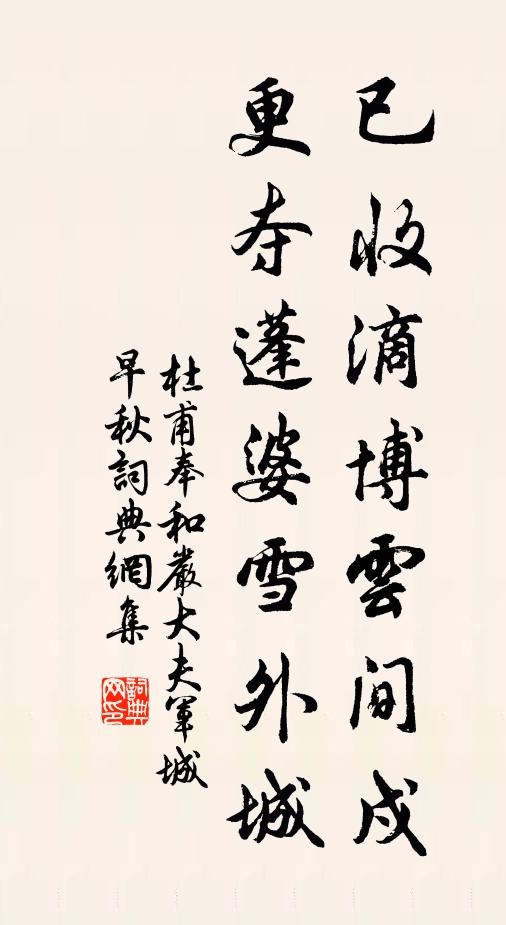 已收滴博雲間戍
更夺蓬婆雪外城
杜甫奉和嚴大夫軍城
早秋詞典網集
詞典网印